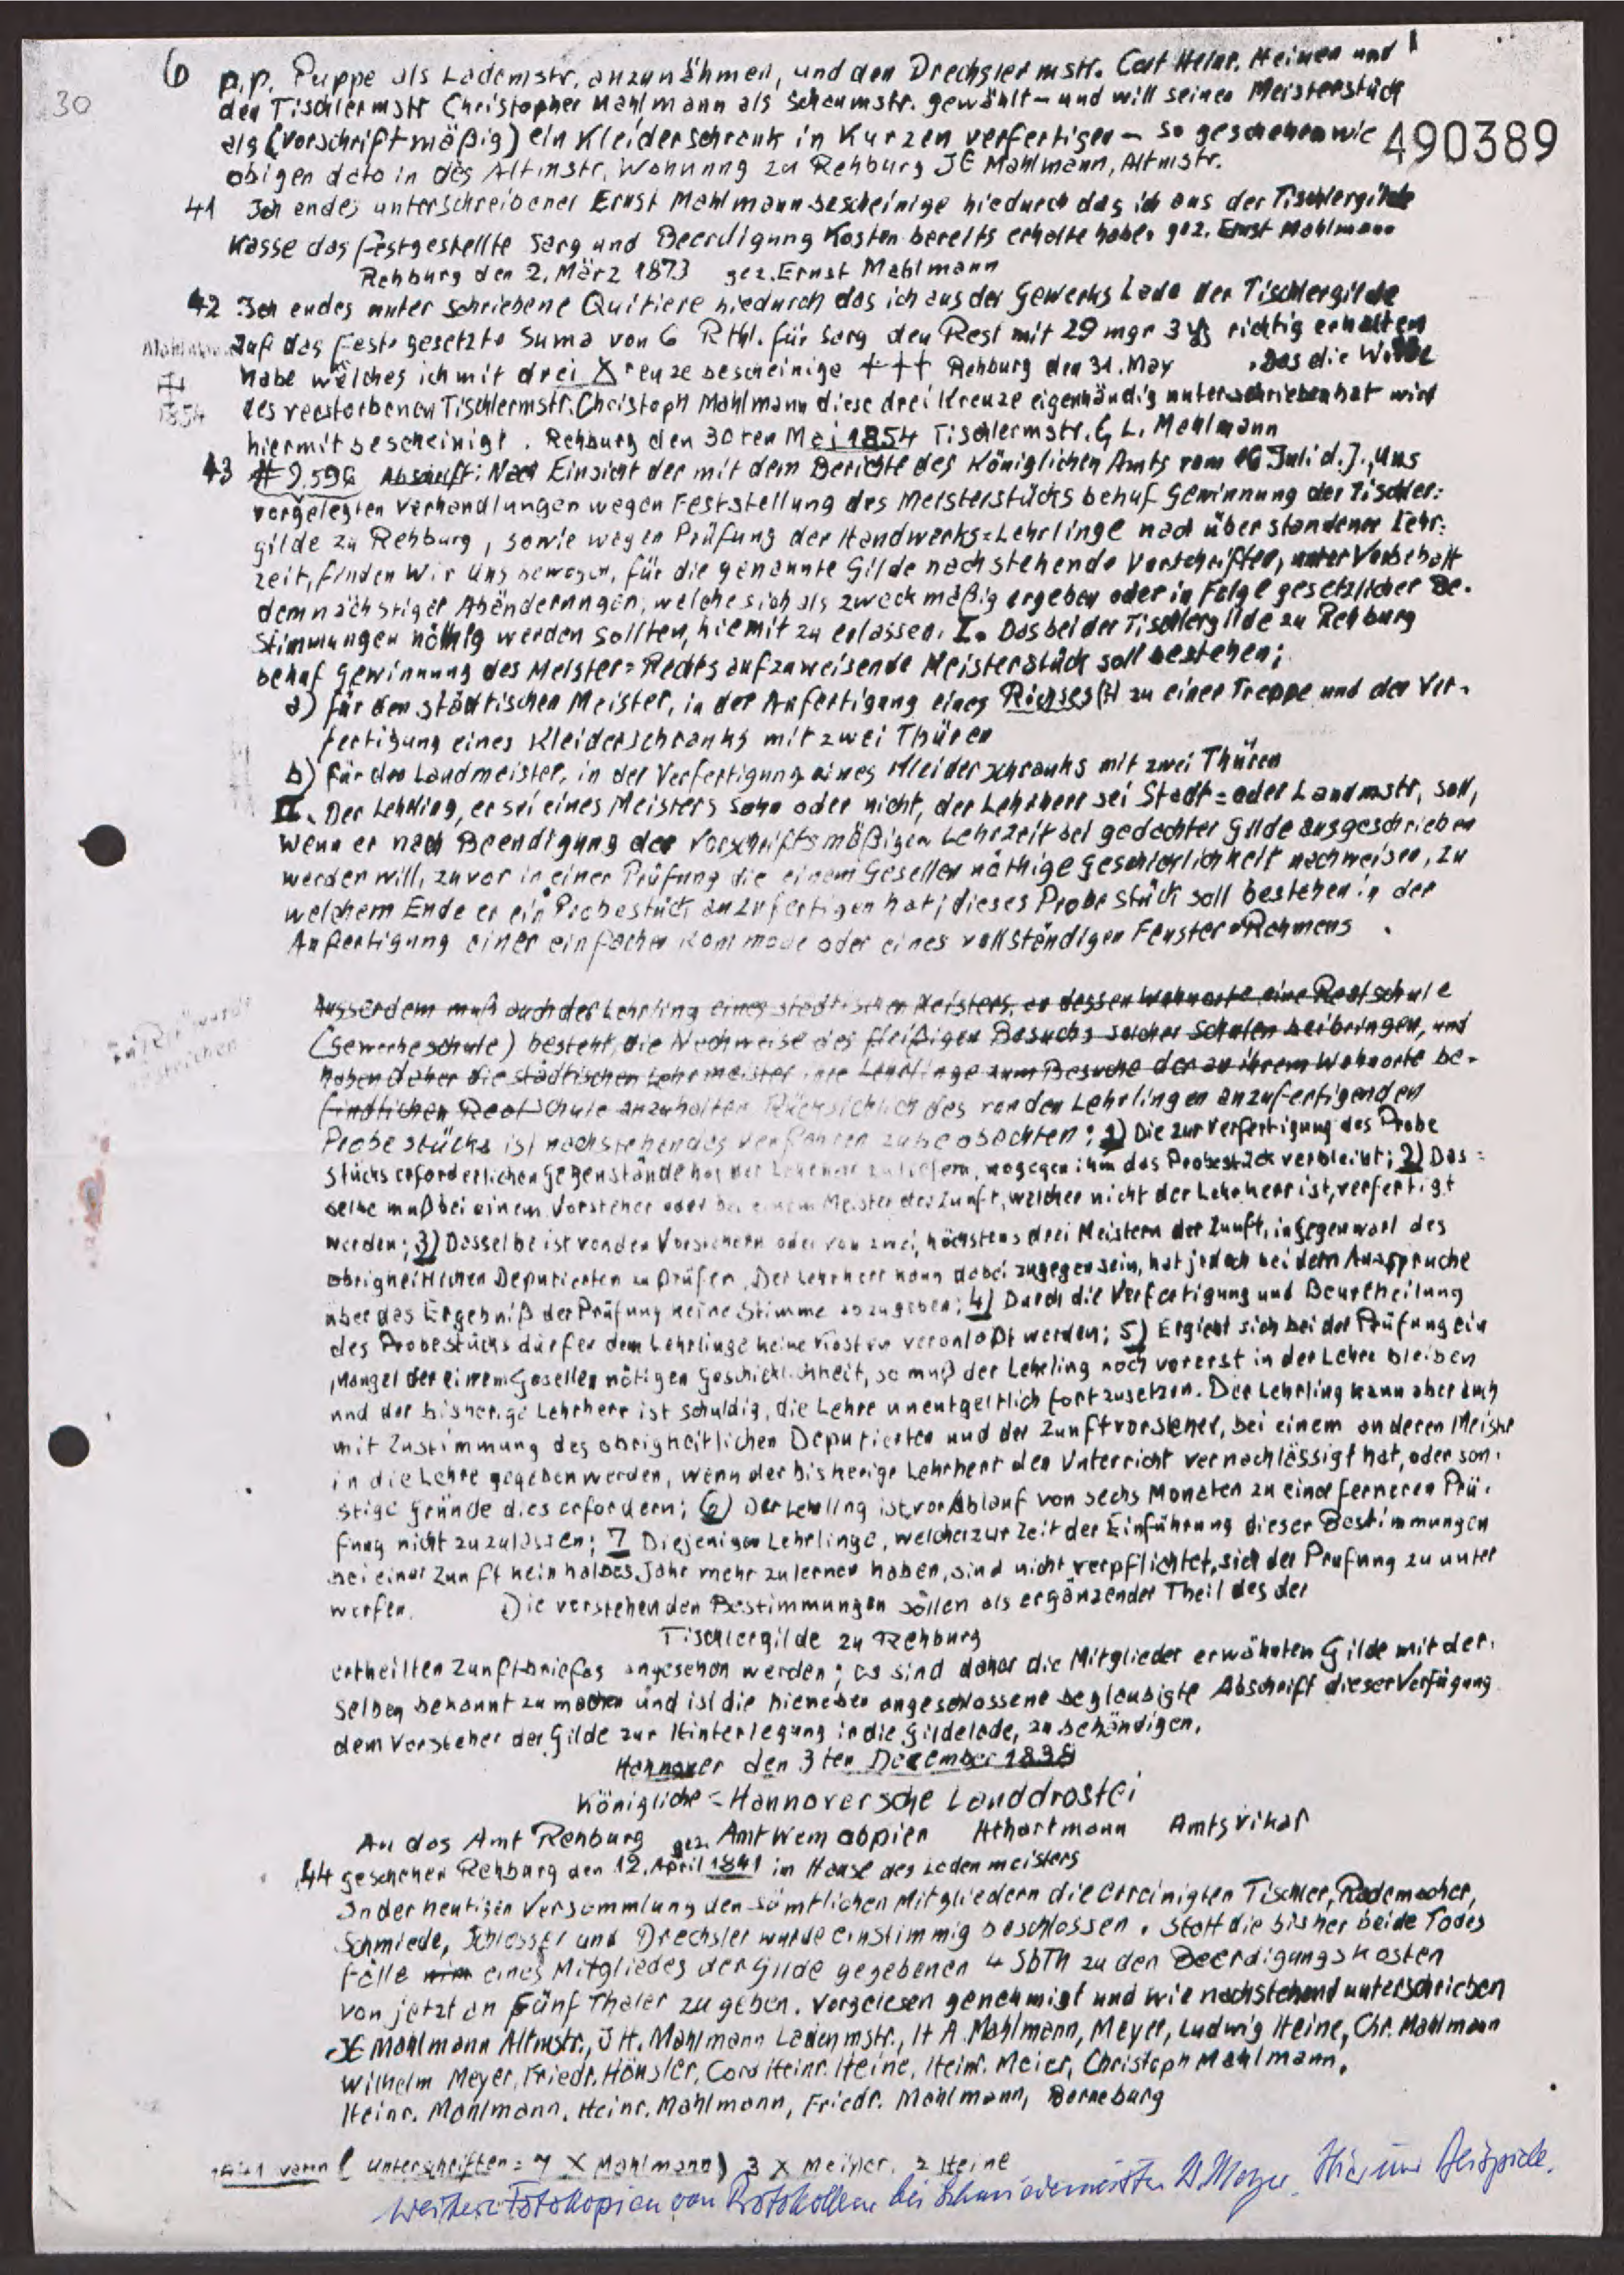 6 p.p. Puppe als Lademstr. anzunähmen, und den Drechslermstr. Cort Heinr. Heinen und
30
den Tischlermstr Christopher Mahlmann als Schaumstr. gewählt – und will seinen Meisterstück
als (vorschriftmäßig) ein Kleiderschrank in Kurzen verfertigen – so geschehen wie
490389
obigen dato in des Altmstr. Wohnung zu Rehburg JE Mahlmann, Altmstr.
41 Ich endes unterschreibener Ernst Mahlmann bescheinige hiedurch das ich aus der Tischlergilde
Kasse das festgestellte Sarg und Beerdigung Kosten bereits erhalte habe. gez. Ernst Mahlmann
Rehburg den 2. März 1873 gez. Ernst Mahlmann
42 Ich endes unter schriebene Quitiere hiedurch das ich aus der Gewerks Lade der Tischlergilde
auf das feste gesetzte Suma von 6 Rthl. für Sarg den Rest mit 29 mgr 3 richtig erhalten
Mahlmann
habe welches ich mit drei Kreuze bescheinige +++ Rehburg den 31. May . Das die Witwe
1854
des verstorbenen Tischlermstr. Christoph Mahlmann diese drei Kreuze eigenhändig unterschrieben hat wird
hiermit bescheinigt. Rehburg den 30ten Mei 1854 Tischlermstr. G L. Mahlmann
43 # 9.596 Abschrift: Nach Einsicht der mit dem Berichte des Königlichen Amts vom 16 Juli d. J., Uns
vorgelegten Verhandlungen wegen Feststellung des Meisterstücks behuf Gewinnung der Tischler:
gilde zu Rehburg, sowie wegen Prüfung der Handwerks=Lehrlinge nach überstandener Lehr:
zeit, finden Wir Uns bewogen, für die genannte Gilde nachstehende Vorschriften, unter Vorbehalt
demnächstiger Abänderungen, welche sich als zweckmäßig ergeben oder in Folge gesetzlicher Be-
stimmungen nöthig werden sollten, hiemit zu erlassen. I. Das bei der Tischlergilde zu Rehburg
behuf Gewinnung des Meister=Rechts aufzuweisende Meisterstück soll bestehen;
a) für den städtischen Meister, in der Anfertigung eines Rißses (H zu einer Treppe und der Ver-
fertigung eines Kleiderschranks mit zwei Thüren
b) für den Landmeister, in der Verfertigung eines Kleiderschranks mit zwei Thüren
II. Der Lehrling, er sei eines Meisters Sohn oder nicht, der Lehrherr sei Stadt= oder Landmstr, soll,
wenn er nach Beendigung der vorschriftsmäßigen Lehrzeit bei gedachter Gilde ausgeschrieben
werden will, zuvor in einer Prüfung die einem Gesellen nöthige Geschicklichkeit nachweisen, zu
welchem Ende er ein Probestück anzufertigen hat; dieses Probestück soll bestehen in der
Anfertigung einer einfachen Kommode oder eines vollständigen Fenster=Rahmens .
Ausserdem muß auch der Lehrling eines städtischen Meisters, an dessen Wohnorte eine Realschule
(Gewerbeschule) besteht, die Nachweise des fleißigen Besuchs solcher Schulen beibringen, und
haben daher die städtischen Lehrmeister ihre Lehrlinge zum Besuche der an ihrem Wohnorte be-
findlichen Realschule anzuhalten Rücksichtlich des von den Lehrlingen anzufertigenden
Probestücks ist nachstehendes Verfahren zu beobachten: 1) Die zur Verfertigung des Probe
stücks erforderlichen Gegenstände hat der Lehrherr zu liefern, wogegen ihm das Probestück verbleibt; 2) Das=
selbe muß bei einem Vorsteher oder bei einem Meister der Zunft, welcher nicht der Lehrherr ist, verfertigt
werden; 3) Dasselbe ist von den Vorstehern oder von zwei, höchstens drei Meistern der Zunft, in Gegenwart des
obrigkeitlichen Deputierten zu prüfen. Der Lehrherr kann dabei zugegen sein, hat jedoch bei dem Ausspruche
über das Ergebniß der Prüfung keine Stimme abzugeben; 4) Durch die Verfertigung und Beurtheilung
des Probestücks dürfen dem Lehrlinge keine Kosten veranlaßt werden; 5) Ergiebt sich bei der Prüfung ein
Mangel der einem Gesellen nötigen Geschicklichheit, so muß der Lehrling noch vorerst in der Lehre bleiben
und der bisherige Lehrherr ist schuldig, die Lehre unentgeltlich fortzusetzen. Der Lehrling kann aber auch
mit Zustimmung des obrigkeitlichen Deputierten und der Zunftvorsteher, bei einem anderen Meister
in die Lehre gegeben werden, wenn der bisherige Lehrherr den Unterricht vernachlässigt hat, oder son-
stige Gründe dies erfordern; 6) Der Lehrling ist vor Ablauf von sechs Monaten zu einer ferneren Prü-
fung nicht zuzulassen; 7 Diejenigen Lehrlinge, welche zur Zeit der Einführung dieser Bestimmungen
bei einer Zunft kein halbes Jahr mehr zu lernen haben, sind nicht verpflichtet, sich der Prüfung zu unter
werfen. Die vorstehenden Bestimmungen sollen als ergänzender Theil des der
Tischlergilde zu Rehburg
ertheilten Zunftbriefes angesehen werden; es sind daher die Mitglieder erwähnten Gilde mit der-
selben bekannt zu machen und ist die hieneben angeschlossene beglaubigte Abschrift dieser Verfügung
dem Vorsteher der Gilde zur Hinterlegung in die Gildelade, zu behändigen.
Hannover den 3ten December 1838
Königliche = Hannoversche Landdrostei
An das Amt Rehburg gez. Amt Hthartmann Amtsvikar
44 geschehen Rehburg den 12. April 1841 im Hause des Ladenmeisters
In der heutigen Versammlung den sämtlichen Mitgliedern die vereinigten Tischler, Rademacher,
Schmiede, Schlosser und Drechsler wurde einstimmig beschlossen. Statt die bisher beide Todes
fälle eines Mitgliedes der Gilde gegebenen 4 SbTh zu den Beerdigungskosten
von jetzt an Fünf Thaler zu geben. Vorgelesen genehmigt und wie nachstehend unterschrieben
JE Mahlmann Altmstr., J H. Mahlmann Ladenmstr., H A Mahlmann, Meyer, Ludwig Heine, Chr. Mahlmann
Wilhelm Meyer, Friedr. Hönsler, Cord Heinr. Heine, Heinr. Meier, Christoph Mahlmann,
Heinr. Mahlmann, Heinr. Mahlmann, Friedr. Mahlmann, Berneburg
1841 (Unterschriften = 7 X Mahlmann) 3 X Meyer, 2 Heine
Weitere Fotokopien von Protokollen bei Schmiedemeister D. Meyer. Hier nur Beispiele.